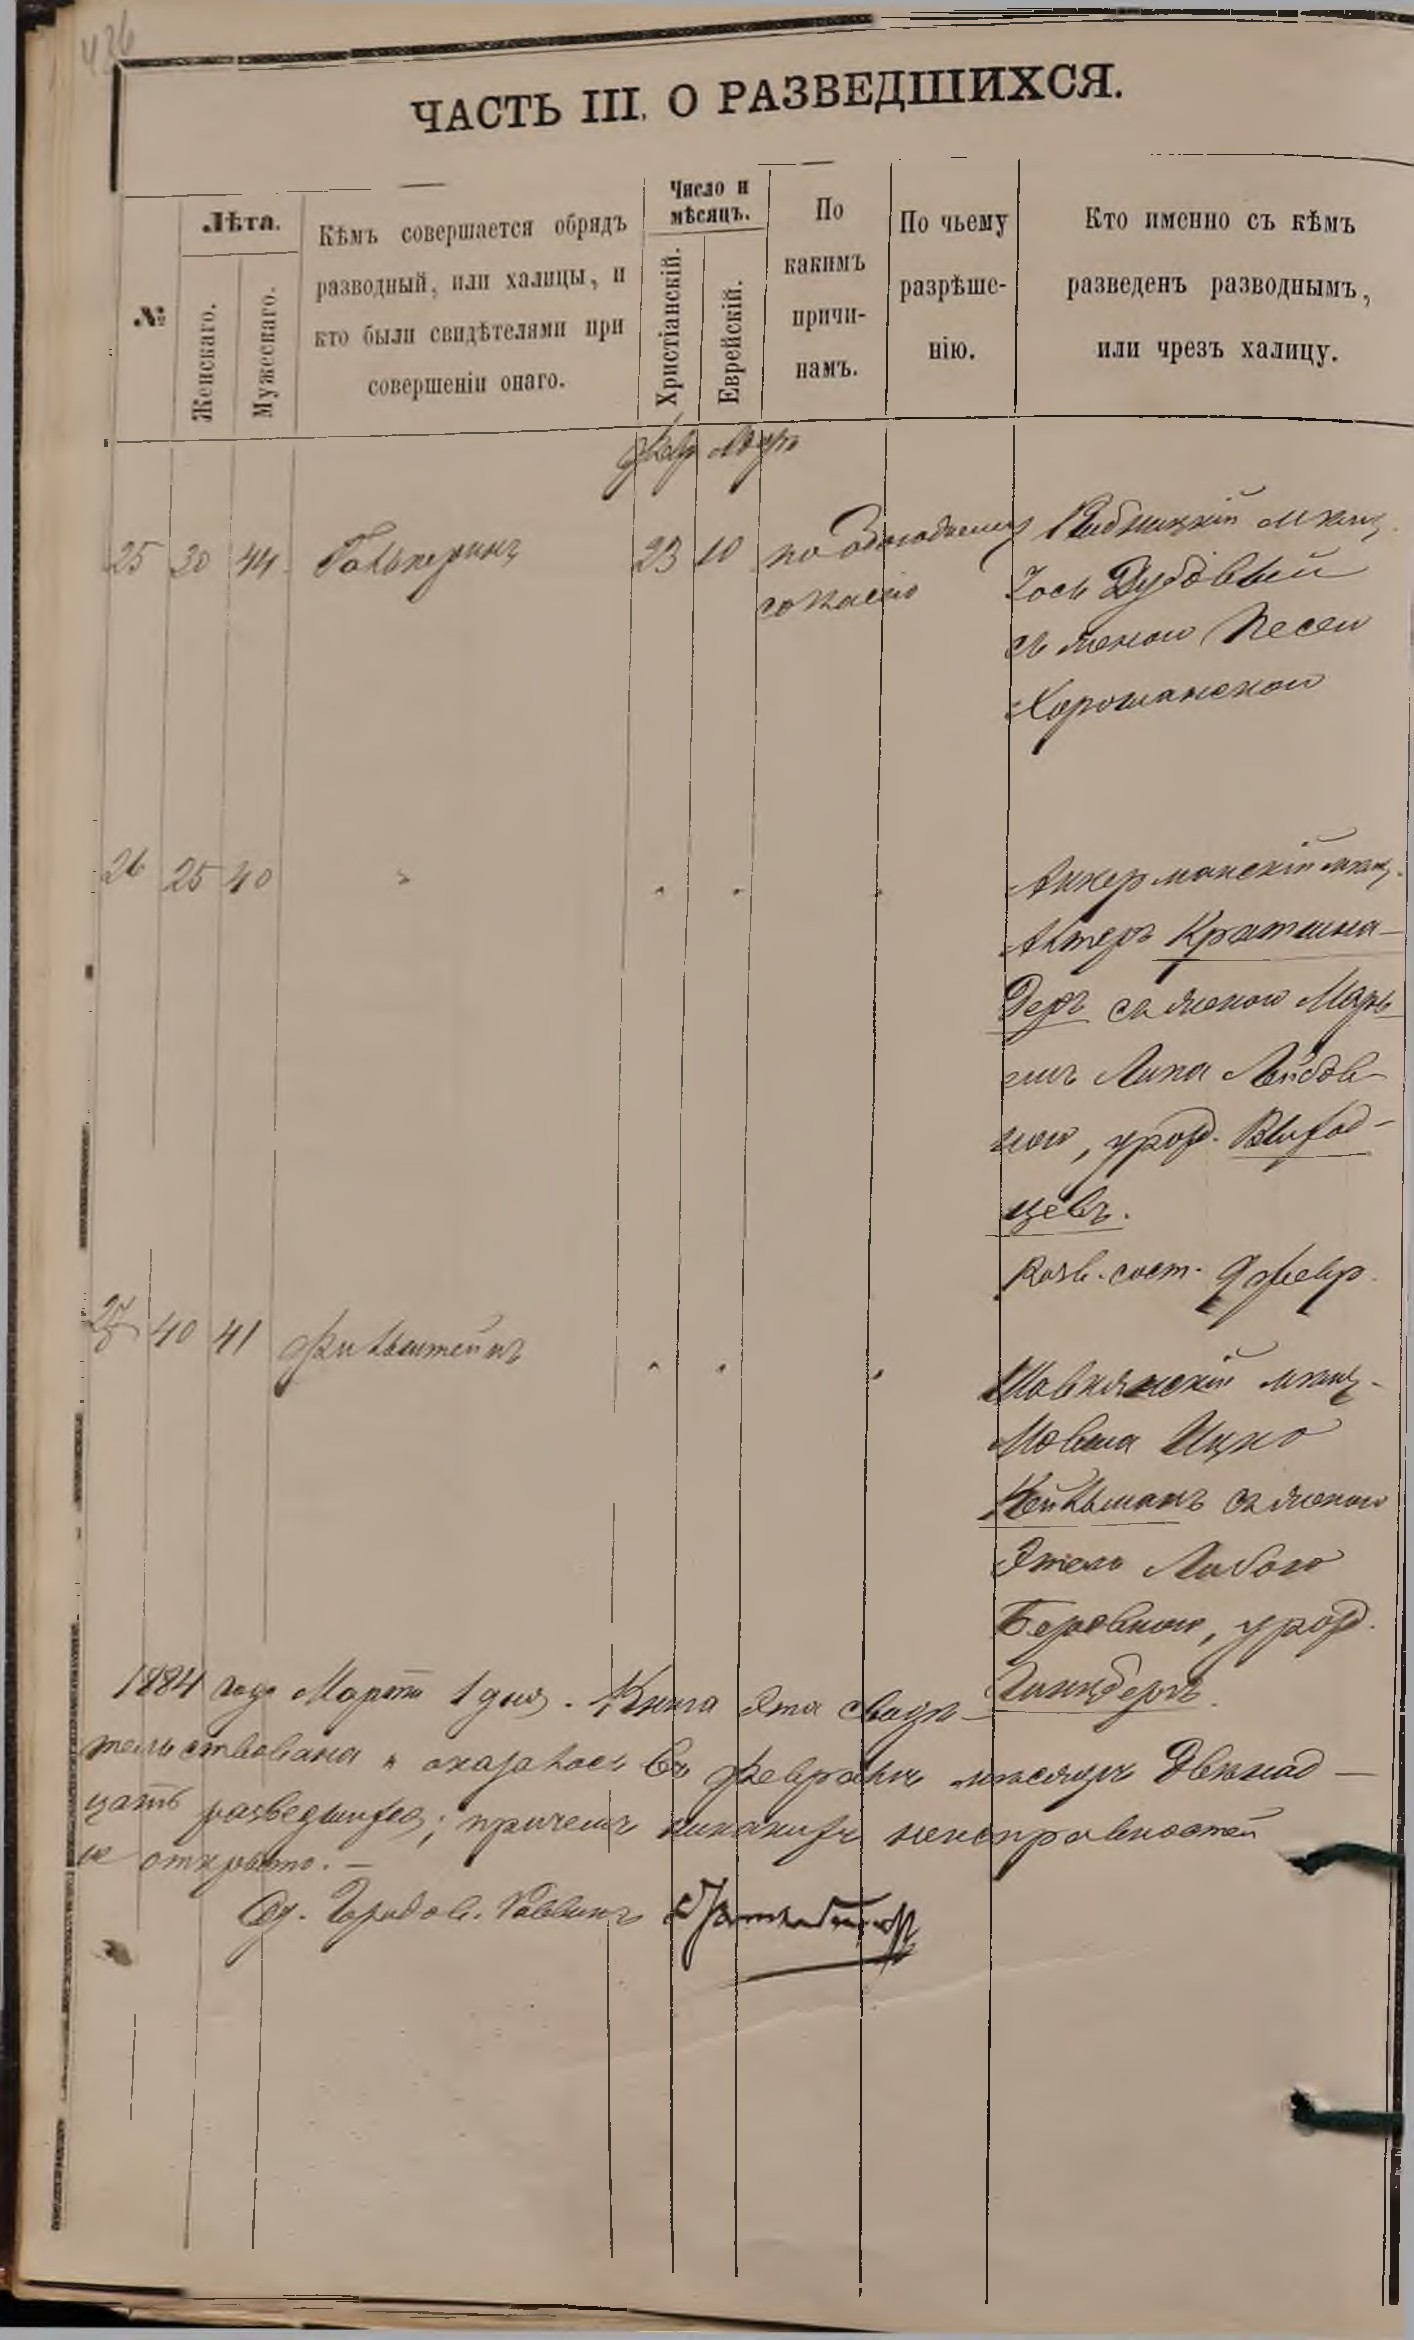 436
ЧАСТЬ III. О РАЗВЕДШИХСЯ.
№
Лѣта.
Женскаго.
Мужескаго.
Кѣмъ совершается обрядъ
разводный, или халицы, и
кто были свидѣтелями при
совершеніи онаго.
Число и
мѣсяцъ.
Христіанскій.
Еврейскій.
По
какимъ
причи-
намъ.
По чьему
разрѣше-
нію.
Кто именно съ кѣмъ
разведенъ разводнымъ,
или чрезъ халицу.
Февр Адръ
25 30 44 Гальперинъ 23 10 по обоюдному
согласію
Рыбницкій мѣщ.
Іось Дубовый
съ женою Песею
Хорошанскою
26 25 40 " " " "
Аккерманскій мѣщ.
Альтеръ Кратина-
Деръ съ женою Марь
Лейбов-
ною, урож. Выход-
цевъ.
Разв. сост. 9 февр.
27 40 41 Финкельштейнъ " " "
мѣщ.
Мовша Ицко
Кейльманъ съ женою
Этель Либою
Беровною, урож.
Гинцбергъ.
1884 года Марта 1 дня. Книга эта свидѣ-
тельствована и оказалось въ Февралѣ мѣсяцѣ двѣнад-
цать разведшихся; причемъ никакихъ неисправностей
не открыто. —
Од. Городов. Раввинъ